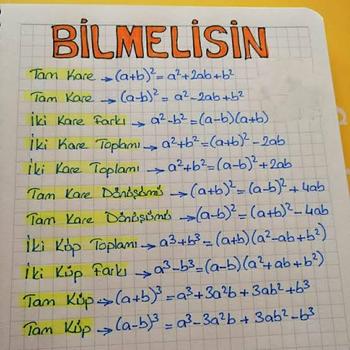 BİLMELİSİN
Tam Kare → (a+b)² = a²+2ab+b²
Tam Kare → (a-b)² = a²-2ab+b²
İki Kare Farkı → a²-b² = (a-b)(a+b)
İki Kare Toplamı → a²+b² = (a+b)² - 2ab
İki Kare Toplamı → a²+b² = (a-b)² + 2ab
Tam Kare Dönüşümü → (a+b)² = (a-b)² + 4ab
Tam Kare Dönüşümü → (a-b)² = (a+b)² - 4ab
İki Küp Toplamı → a³+b³ = (a+b)(a²-ab+b²)
İki Küp Farkı → a³-b³ = (a-b)(a²+ab+b²)
Tam Küp → (a+b)³ = a³+3a²b + 3ab²+b³
Tam Küp → (a-b)³ = a³-3a²b + 3ab²-b³